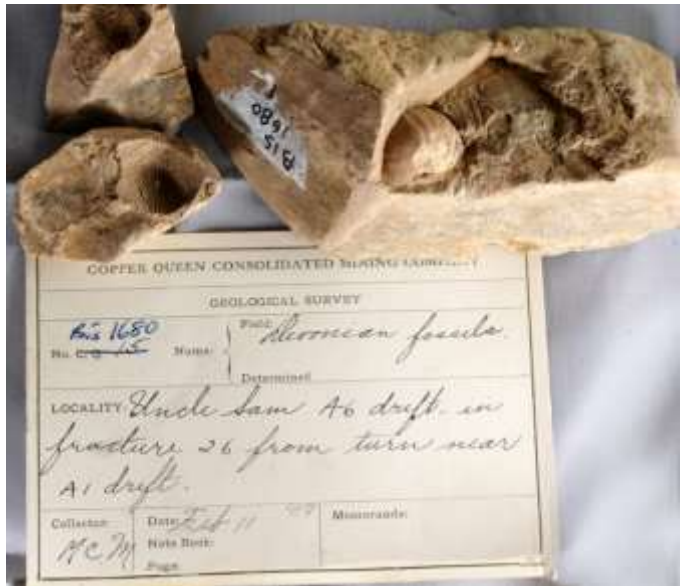 BIS
1680
COPPER QUEEN CONSOLIDATED MINING COMPANY
GEOLOGICAL SURVEY
Bis 1680
No. C.Q. 15 Name: Field: Devonian fossils.
Determined
LOCALITY: Uncle Sam A6 drift in
fracture 26 from turn near
A1 drift.
Collector: Date: Feb 11 Memoranda:
H C M Note Book:
Page